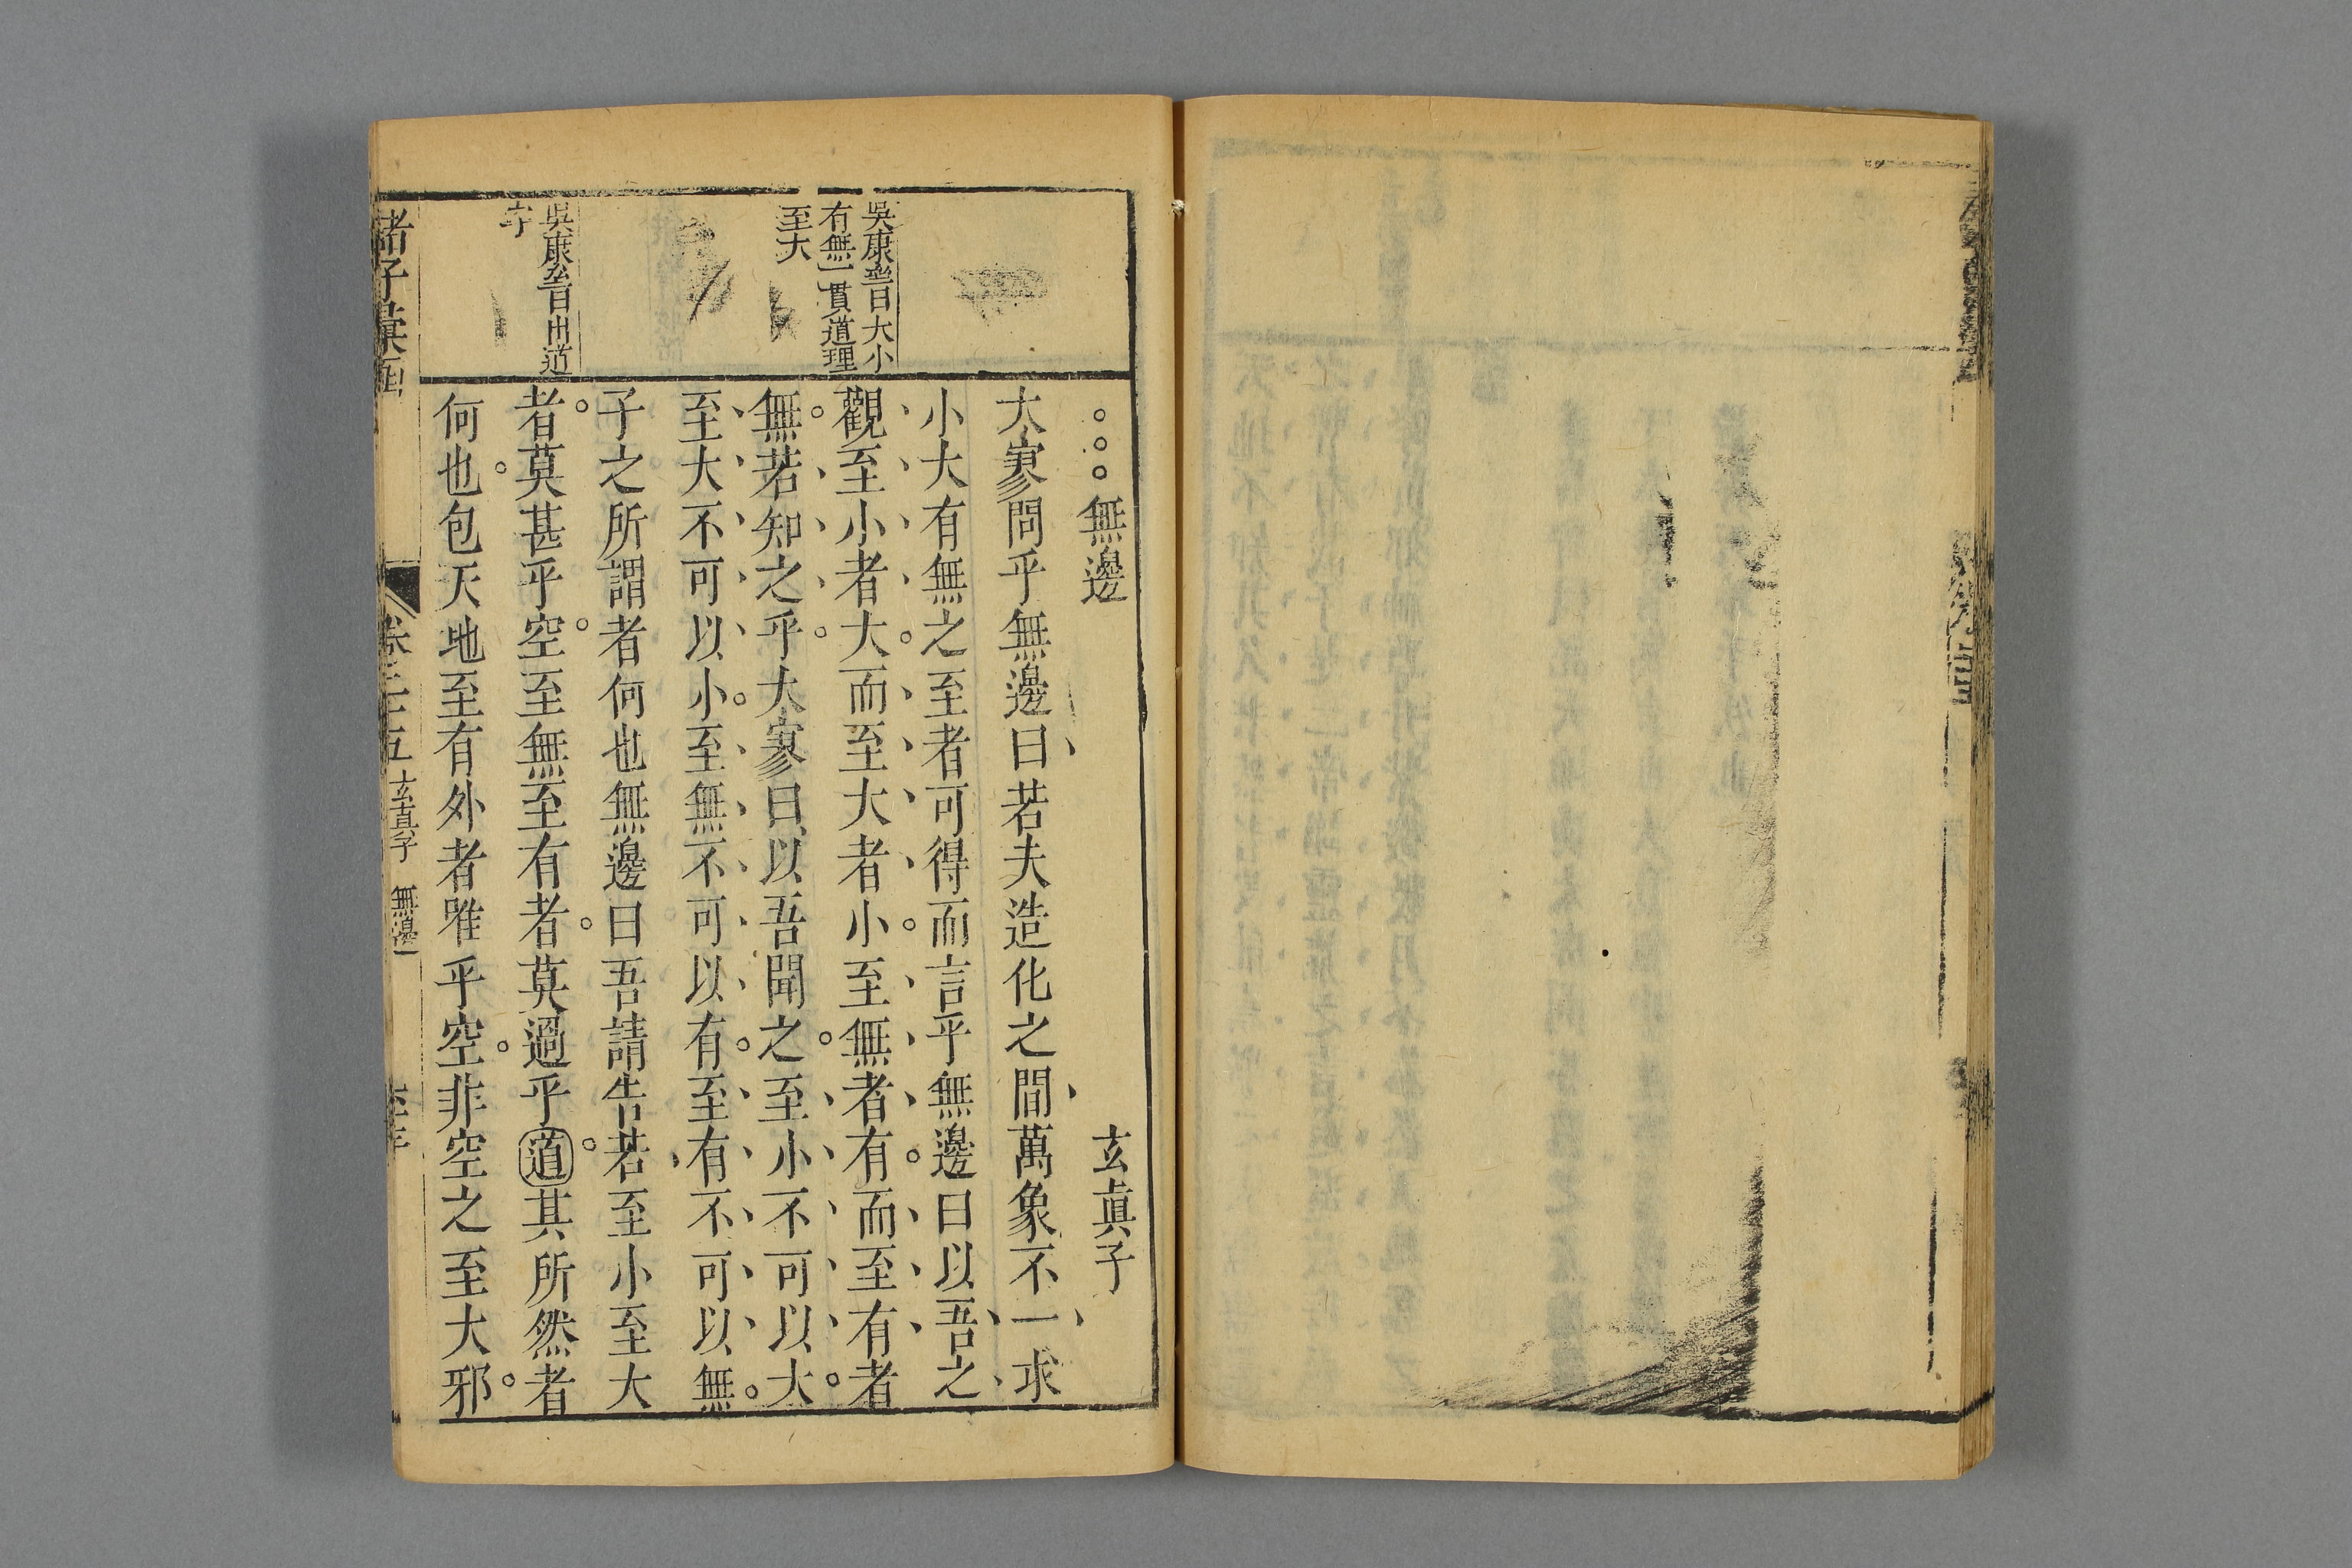 無邊 玄眞子
大寥問乎無邊曰若夫造化之間萬象不一求
小大有無之至者可得而言乎無邊曰以吾之
觀至小者大而至大者小至無者有而至有者
無若知之乎大寥曰以吾聞之至小不可以大
至大不可以小至無不可以有至有不可以無
子之所謂者何也無邊曰吾請告若至小至大
者莫甚乎空至無至有者莫過乎道其所然者
何也包天地至有外者唯乎空非空之至大邪
吳康齋曰大小
有無一貫道理
至大
吳康齋曰出道
字
諸子彙函
卷二十五 玄真子 無邊 一